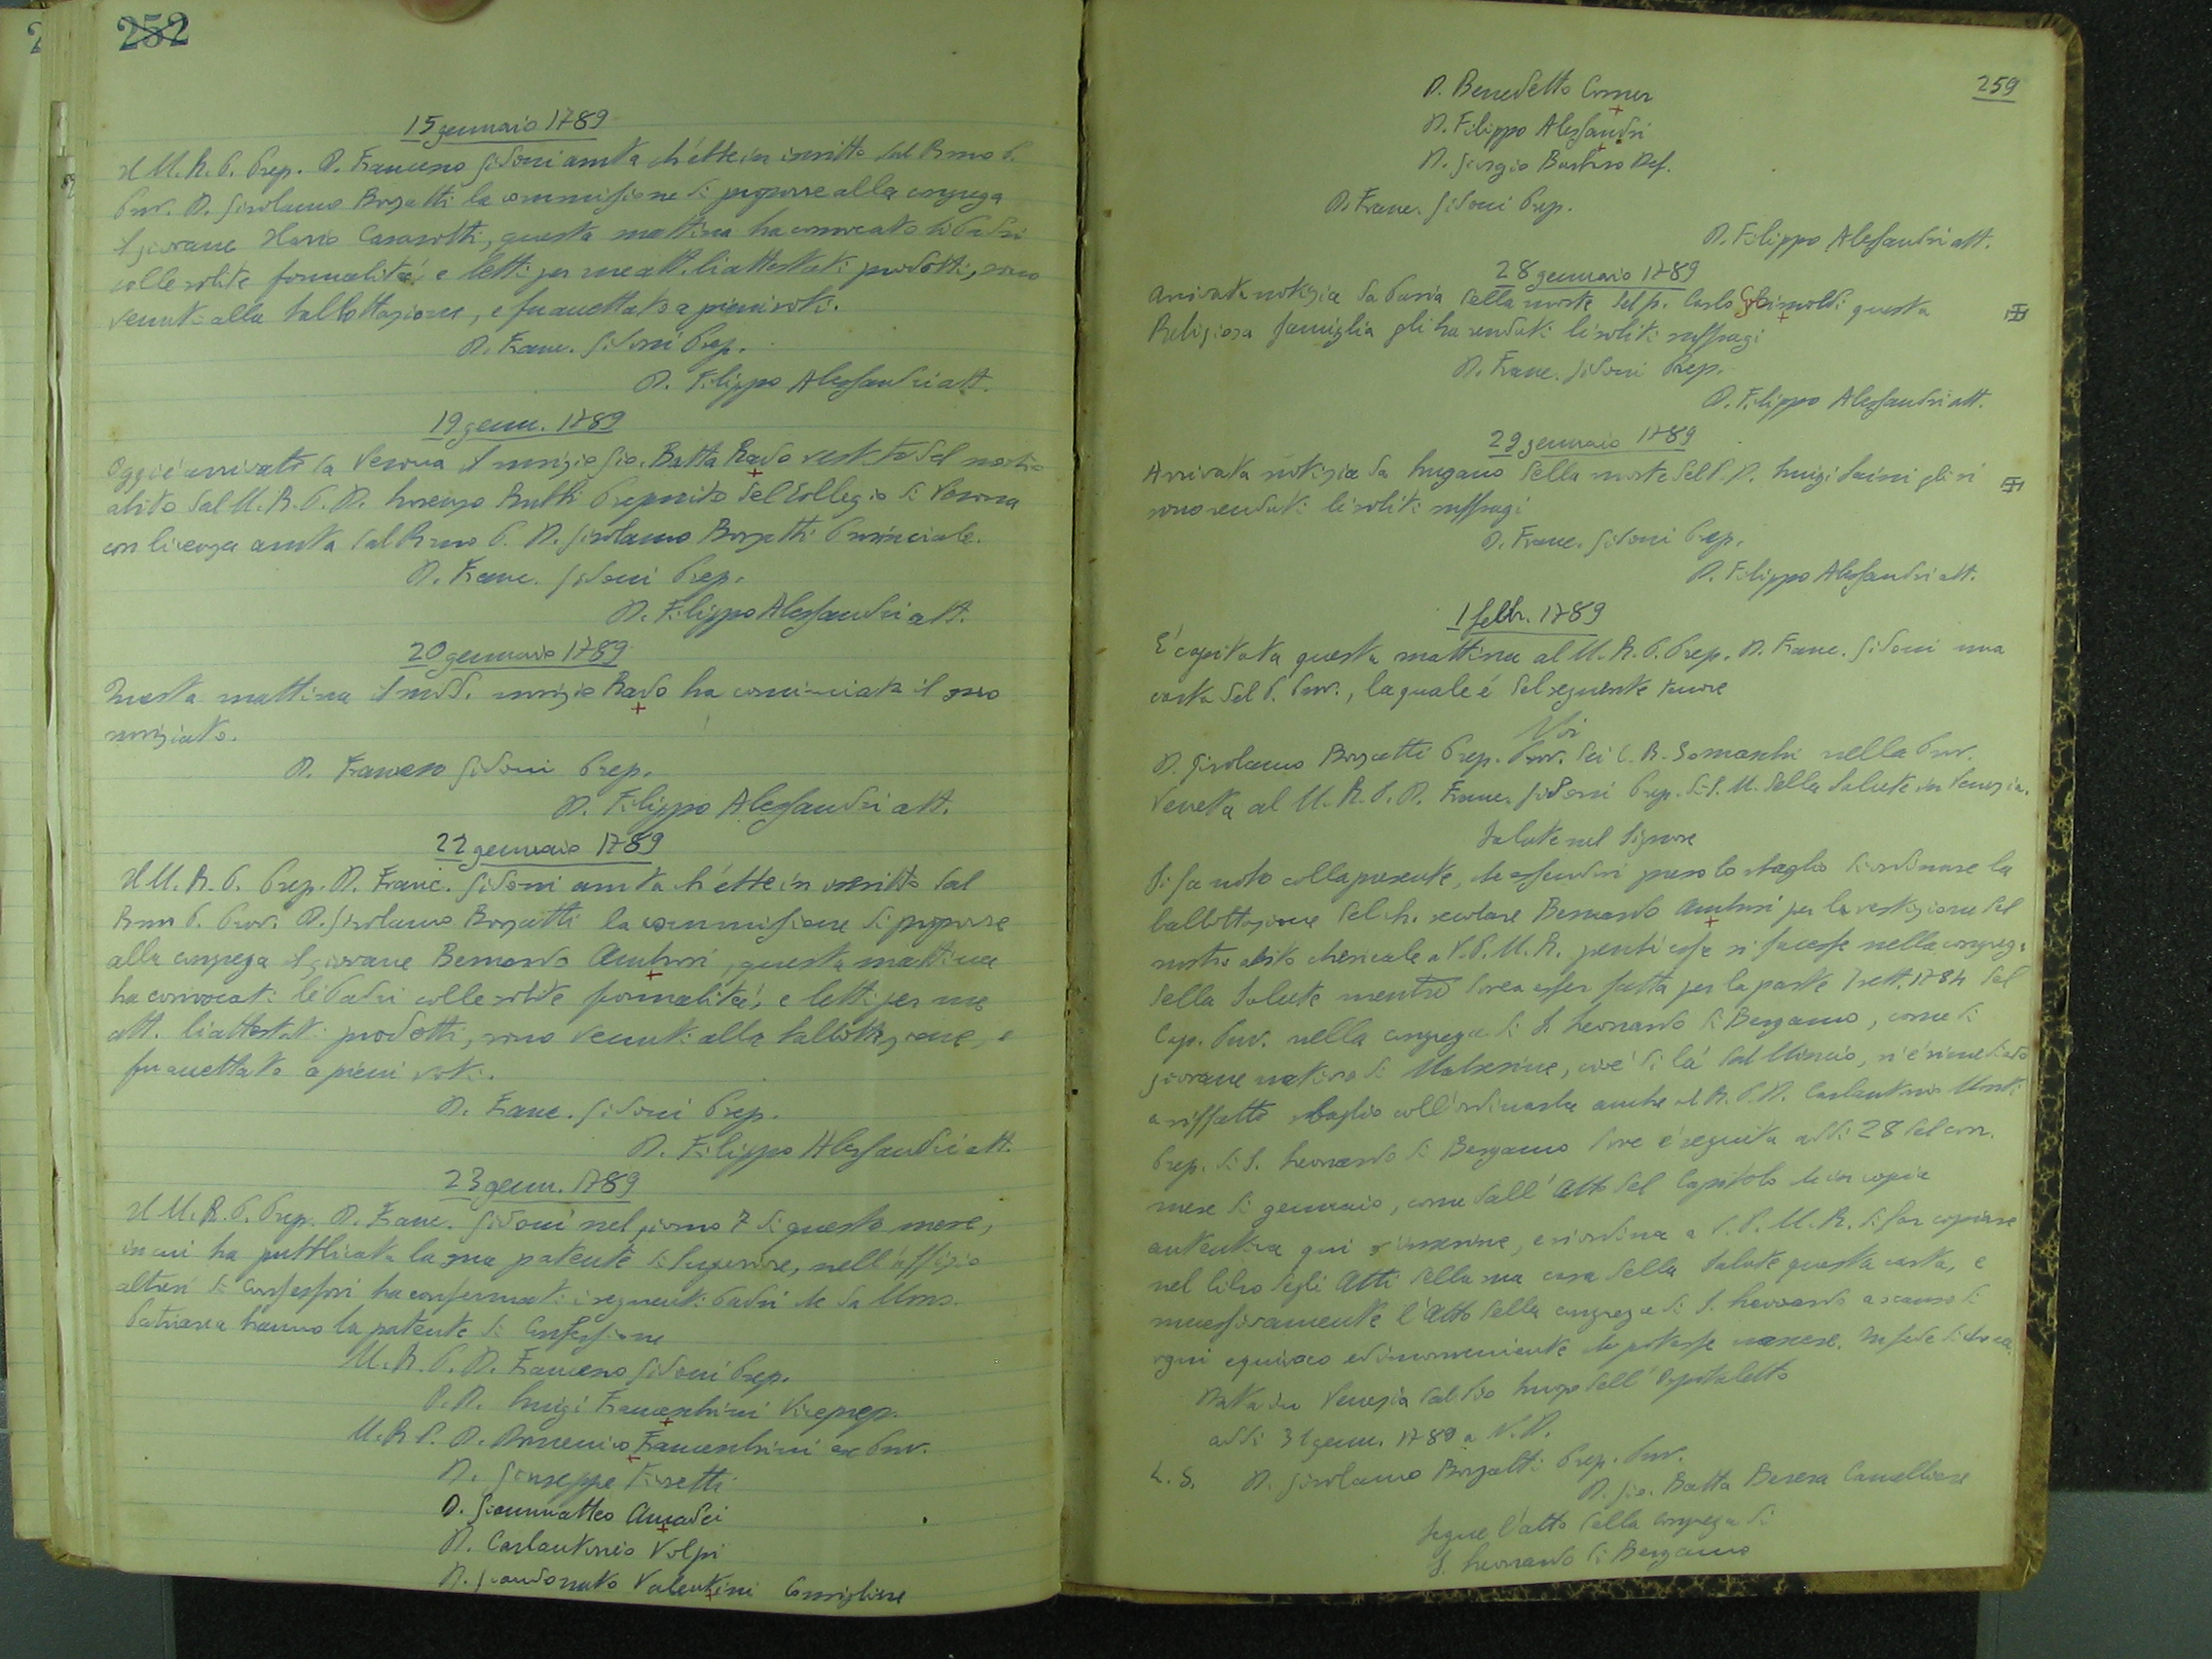 252
15 gennaio 1789
Il M. R. P. Prep. D. Francesco Gidoni avuta ch'ebbe in iscritto dal Rmo P.
Prov. D. Girolamo Borgatti la commissione di proporre alla congrega
il giovane Ilario Casarotti, questa mattina ha convocato li Padri
colle solite formalità e letti per me att. li attestati prodotti, sono
venuti alla ballottazione, e fu accettato a pieni voti.
D. Franc. Gidoni Prep.
D. Filippo Alessandri att.
19 genn. 1789
Oggi è arrivato da Verona il novizio Gio. Batta Rado vestito del nostro
abito dal M. R. P. D. Lorenzo Butti Preposito del Collegio di Verona
con licenza avuta dal Rmo P. D. Girolamo Borgatti Provinciale.
D. Franc. Gidoni Prep.
D. Filippo Alessandri att.
20 gennaio 1789
Questa mattina il sudd. novizio Rado ha cominciato il suo
noviziato.
D. Francesco Gidoni Prep.
D. Filippo Alessandri att.
22 gennaio 1789
Il M. R. P. Prep. D. Franc. Gidoni avuta ch'ebbe in iscritto dal
Rmo P. Prov. D. Girolamo Borgatti la commissione di proporre
alla congrega il giovane Bernardo Ambrosi, questa mattina
ha convocati li Padri colle solite formalità, e letti per me
att. li attestati prodotti, sono venuti alla ballottazione, e
fu accettato a pieni voti.
D. Franc. Gidoni Prep.
D. Filippo Alessandri att.
23 genn. 1789
Il M. R. P. Prep. D. Franc. Gidoni nel giorno 7 di questo mese,
in cui ha pubblicata la sua patente di Superiore, nell'uffizio
altresì di Confessori ha confermati i seguenti Padri che da Mons.
Patriarca hanno la patente di Confessione
M. R. P. D. Francesco Gidoni Prep.
P. D. Luigi Franceschini Viceprep.
M. R. P. D. Domenico Franceschini ex Prov.
D. Giuseppe Fioretti
D. Giammatteo Amadei
D. Carlantonio Volpi
D. Giandonato Valentini Consigliere
259
D. Benedetto Corner
D. Filippo Alessandri
D. Giorgio Barbaro Def.
D. Franc. Gidoni Prep.
D. Filippo Alessandri att.
28 gennaio 1789
Arrivata notizia da Pavia della morte del p. Carlo Grimoldi questa
Religiosa famiglia gli ha renduti li soliti suffragi
D. Franc. Gidoni Prep.
D. Filippo Alessandri att.
29 gennaio 1789
Arrivata notizia da Lugano della morte del P. D. Luigi gli si
sono renduti li soliti suffragi
D. Franc. Gidoni Prep.
D. Filippo Alessandri att.
1 febbr. 1789
È capitata questa mattina al M. R. P. Prep. D. Franc. Gidoni una
carta del P. Prov., la quale è del seguente tenore
Noi
D. Girolamo Borgatti Prep. Prov. dei C. R. Somaschi nella Prov.
Veneta al M. R. P. D. Franc. Gidoni Prep. di S. M. della Salute in Venezia.
Salute nel Signore
Si fa noto colla presente, che essendosi preso lo sbaglio di ordinare la
ballottazione del ch. secolare Bernardo Ambrosi per la vestizione del
nostro abito chericale a V. P. M. R. perch'essa si facesse nella congrega
della Salute mentre dovea esser fatta per la parte 7 sett. 1784 del
Cap. Prov. nella congrega di S. Leonardo di Bergamo, come di
giovane nativo di Malcesine, cioè di là dal Mincio, si è rimediato
a siffatto sbaglio coll'ordinarla anche al R. P. D. Carlantonio Monti
Prep. di S. Leonardo di Bergamo dove è seguita addì 28 del corr.
mese di gennaio, come dall'Atto del Capitolo che in copia
autentica qui s'inserisce, e si ordina a V. P. M. R. di far copiare
nel libro degli Atti della sua casa della Salute questa carta, e
successivamente l'Atto della congrega di S. Leonardo a scanso di
ogni equivoco ed inconveniente che potesse nascere. In fede di che
Data in Venezia dal Pio Luogo dell'Ospitaletto
addì 31 genn. 1789 a N. D.
L. S. D. Girolamo Borgatti Prep. Prov.
D. Gio. Batta Barera Cancelliere
Segue l'atto della congrega di
S. Leonardo di Bergamo